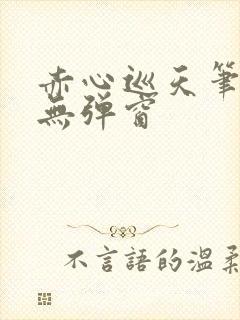 赤心巡天筆
無彈窗
不言語的温柔